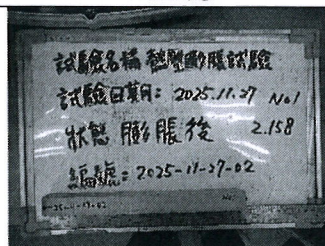 試驗名稱 整塑膨脹試驗
試驗日期: 2025.11.27 No1
狀態 膨脹後 2.158
編號: 2025-11-27-02